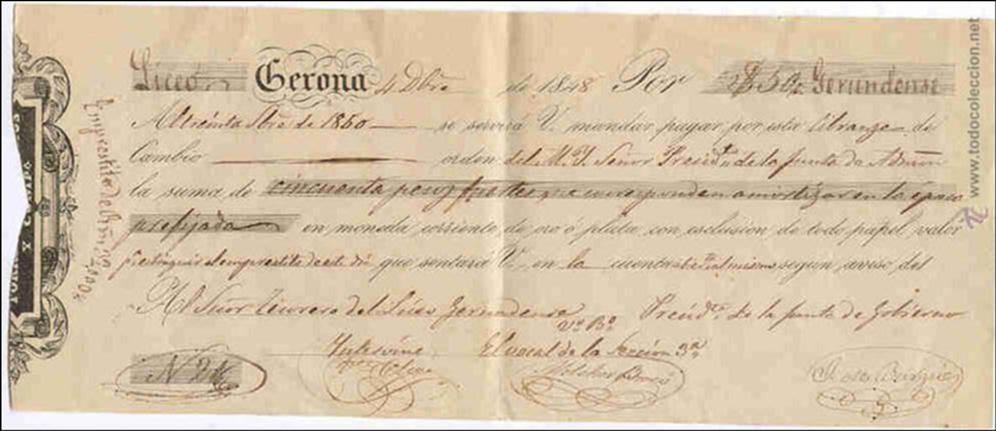 Liceo Gerona 4 Dbre de 1848 Por 50 Gerundense
Al treinta Sbre de 1860 se servirá V. mandar pagar por esta libranza de
Cambio orden del M. Y. Señor Presidte de la Junta de Admon
la suma de cincuenta pesos fuertes que corresponden amortizar en la época
prefijada en moneda corriente de oro ó plata con esclusion de todo papel valor
emprestito de este dia que sentará V. en la cuenta del mismo segun aviso del
Al Señor Tesorero del Liceo Gerundense Presidte de la Junta de Gobierno
Vº Bº
El vocal de la Seccion 3ª
N 24
Emprestito de
www.todocoleccion.net